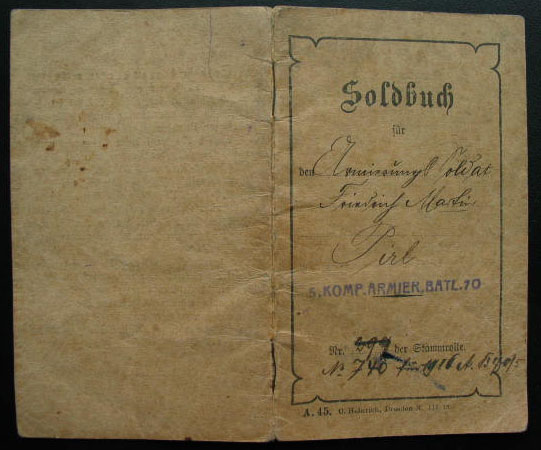 Soldbuch
für
den Armierungs Soldat
Friedrich Martin
Pirl
5. KOMP. ARMIER. BATL. 70
Nr. 299 der Stammrolle.
No 740 1916 A.
A. 45. O. Heinrich, Dresden N.